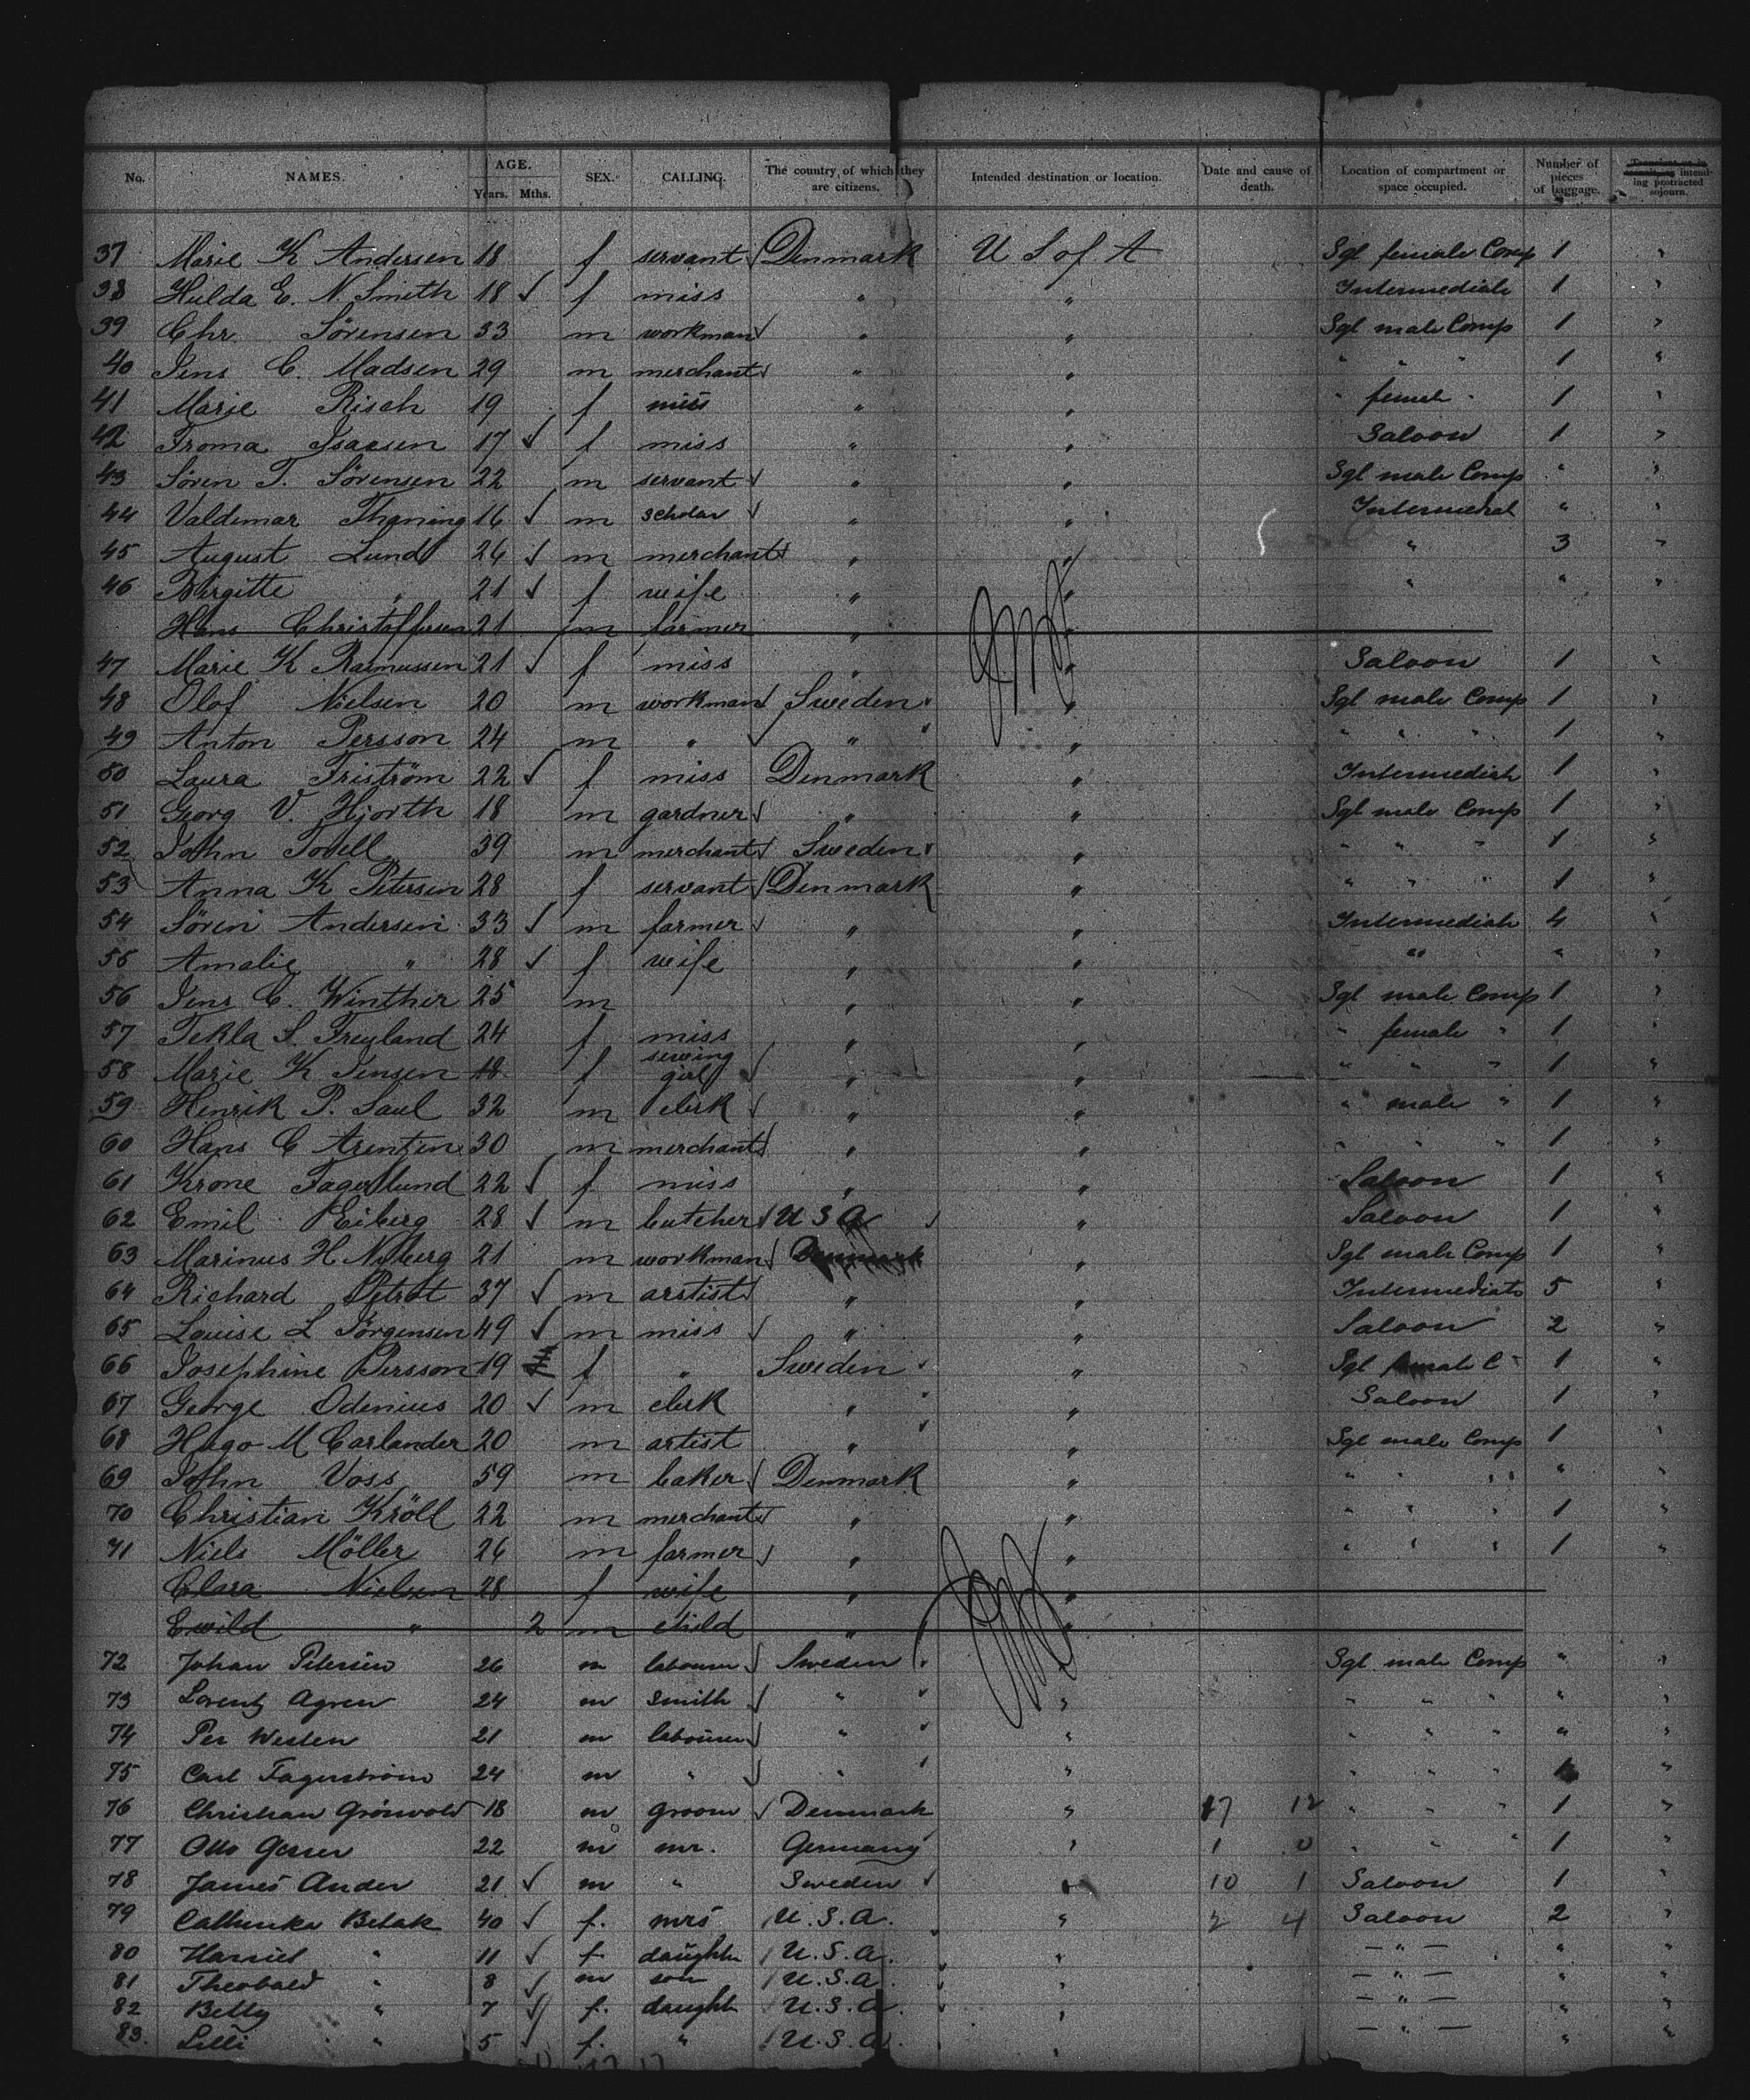 No. NAMES. AGE. Years. Mths. SEX. CALLING. The country of which they are citizens. Intended destination or location. Date and cause of death. Location of compartment or space occupied. Number of pieces of baggage. intending protracted sojourn.
37 Marie K Andersen 18 f servant Denmark U S of A Sgl female Comp 1 "
38 Hulda E. N. Smith 18 ✓ f miss " " Intermediate 1 "
39 Chr. Sörensen 33 m workman " " Sgl male Comp 1 "
40 Jens C. Madsen 29 m merchant " " " " " 1 "
41 Marie Risch 19 f miss " " " female " 1 "
42 Froma Isacsen 17 ✓ f miss " " Saloon 1 "
43 Sören T. Sörensen 22 m servant " " Sgl male Comp " "
44 Valdemar Thaning 16 ✓ m scholar " " Intermediat " "
45 August Lund 26 ✓ m merchant " " " 3 "
46 Birgitte " 21 ✓ f wife " " " " "
Hans Christoffersen 21 m farmer " "
47 Marie K Rasmussen 21 ✓ f miss " " Saloon 1 "
48 Olof Nielsen 20 m workman Sweden " Sgl male Comp 1 "
49 Anton Persson 24 m " " " " " " 1 "
50 Laura Friström 22 ✓ f miss Denmark " Intermediate 1 "
51 Georg V. Hjorth 18 m gardner " " Sgl male Comp 1 "
52 John Tovell 39 m merchant Sweden " " " " 1 "
53 Anna K Petersen 28 f servant Denmark " " " " 1 "
54 Sören Andersen 33 ✓ m farmer " " Intermediate 4 "
55 Amalie " 28 ✓ f wife " " " " "
56 Jens C. Winther 25 m " " Sgl male Comp 1 "
57 Tekla S. Freyland 24 f miss " " " female " 1 "
58 Marie K Jensen 18 f sewing girl " " " " " 1 "
59 Henrik P. Saul 32 m clerk " " " male " 1 "
60 Hans C Arentzen 30 m merchant " " " " " 1 "
61 Krone Fagerlund 22 ✓ f miss " " Saloon 1 "
62 Emil Eiberg 28 ✓ m butcher U S A " Saloon 1 "
63 Marinus H Nyberg 21 m workman Denmark " Sgl male Comp 1 "
64 Richard Petrot 37 ✓ m arstist " " Intermediate 5 "
65 Louise L Jörgensen 49 ✓ m miss " " Saloon 2 "
66 Josephine Persson 19 f " Sweden " Sgl female C 1 "
67 George Odenius 20 ✓ m clerk " " Saloon 1 "
68 Hugo M Carlander 20 m artist " " Sgl male Comp 1 "
69 John Voss 59 m baker Denmark " " " " " "
70 Christian Kröll 22 m merchant " " " " " 1 "
71 Niels Möller 26 m farmer " " " " " 1 "
Clara Nielsen 28 f wife " "
Ewild " 2 m child " "
72 Johan Petersen 26 m labourer Sweden " Sgl male Comp " "
73 Lorentz Agren 24 m smith " " " " " " "
74 Per Westen 21 m labourer " " " " " " "
75 Carl Fagerström 24 m " " " " " " "
76 Christian Grönvold 18 m groom Denmark " 17 12 " " " 1 "
77 Otto Gesser 22 m mr. Germany " 1 0 " " " 1 "
78 James Ander 21 ✓ m " Sweden " 10 1 Saloon 1 "
79 Cathinka Belak 40 ✓ f. mrs U.S.A. " 2 4 Saloon 2 "
80 Harriet " 11 ✓ f daughte U.S.A. " — " — " "
81 Theobald " 8 ✓ m son U.S.A. " — " — " "
82 Betty " 7 ✓ f. daught U.S.A. " — " — " "
83. Lilli " 5 ✓ f. " U.S.A. " — " — " "